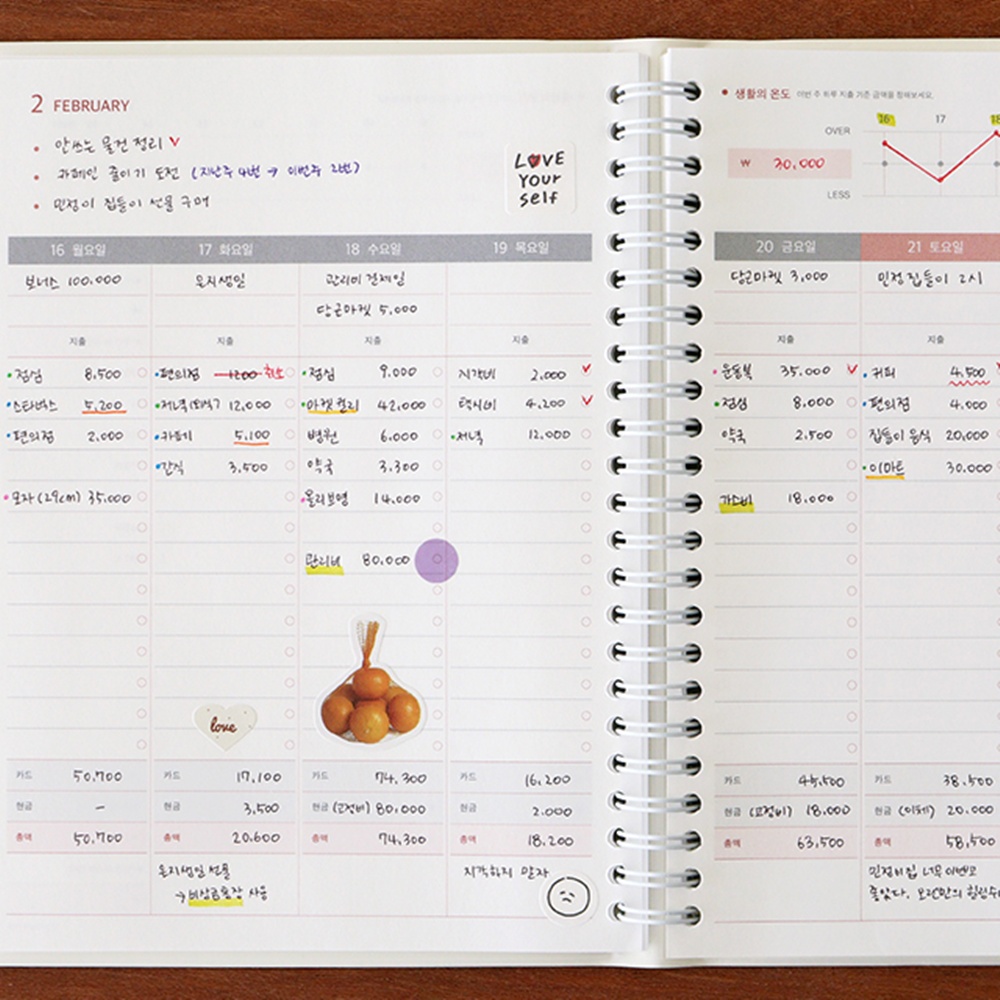 2 FEBRUARY
안쓰는 물건 정리
카페인 줄이기 도전 (지난주 4번 → 이번주 2번)
민정이 집들이 선물 구매
LOVE
Your
self
16 월요일 17 화요일 18 수요일 19 목요일
보너스 100,000 은지생일 관리비 결제일
당근마켓 5,000
지출 지출 지출
점심 8,500 편의점 1200 취소 점심 9,000 지각비 2,000
스타벅스 5,200 저녁 12,000 마켓컬리 42,000 택시비 4,200
편의점 2,000 카페 5,100 병원 6,000 저녁 12,000
간식 3,500 약국 3,300
모자(29cm) 35,000 올리브영 14,000
관리비 80,000
love
카드 50,700 카드 17,100 카드 74,300 카드 16,200
현금 - 현금 3,500 현금 (고정비) 80,000 현금 2,000
총액 50,700 총액 20,600 총액 74,300 총액 18,200
은지생일 선물 지각하지 말자
→ 비상금통장 사용
생활의 온도 이번 주 하루 지출 기준 금액을 정해보세요.
16 17 18
OVER
₩ 30,000
LESS
20 금요일 21 토요일
당근마켓 3,000 민정 집들이 2시
지출 지출
운동복 35,000 커피 4,500
점심 8,000 편의점 4,000
약국 2,500 집들이 음식 20,000
이마트 30,000
가스비 18,000
카드 45,500 카드 38,500
현금 (고정비) 18,000 현금 (이체) 20,000
총액 63,500 총액 58,500
민정이집 너무 이쁘고
좋았다. 오랜만의 힐링